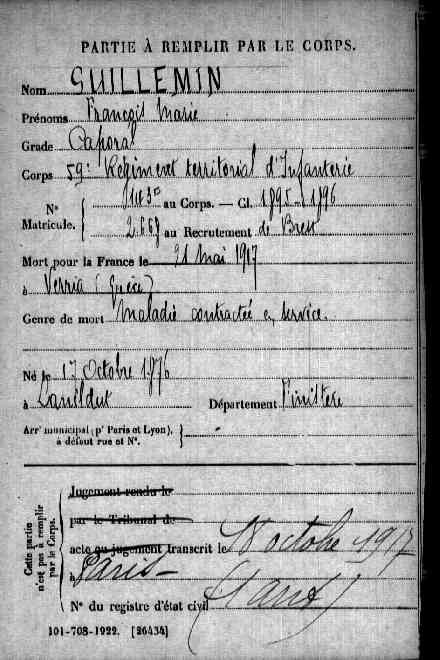 PARTIE À REMPLIR PAR LE CORPS.
Nom GUILLEMIN
Prénoms François Marie
Grade Caporal
Corps 59e Régiment territorial d'Infanterie
N° au Corps. — Cl. 1895 - 1896
Matricule. 2.667 au Recrutement de Brest
Mort pour la France le 21 Mai 1917
à Verria (Grèce)
Genre de mort Maladie contractée en service.
Né le 17 Octobre 1876
à Lanildut Département Finistère
Arrt municipal (pr Paris et Lyon),
à défaut rue et N°.
Cette partie
n'est pas à remplir
par le Corps.
Jugement rendu le
par le Tribunal de
acte ou jugement transcrit le 18 octobre 1917
à Paris
N° du registre d'état civil
101-708-1922. [26434]